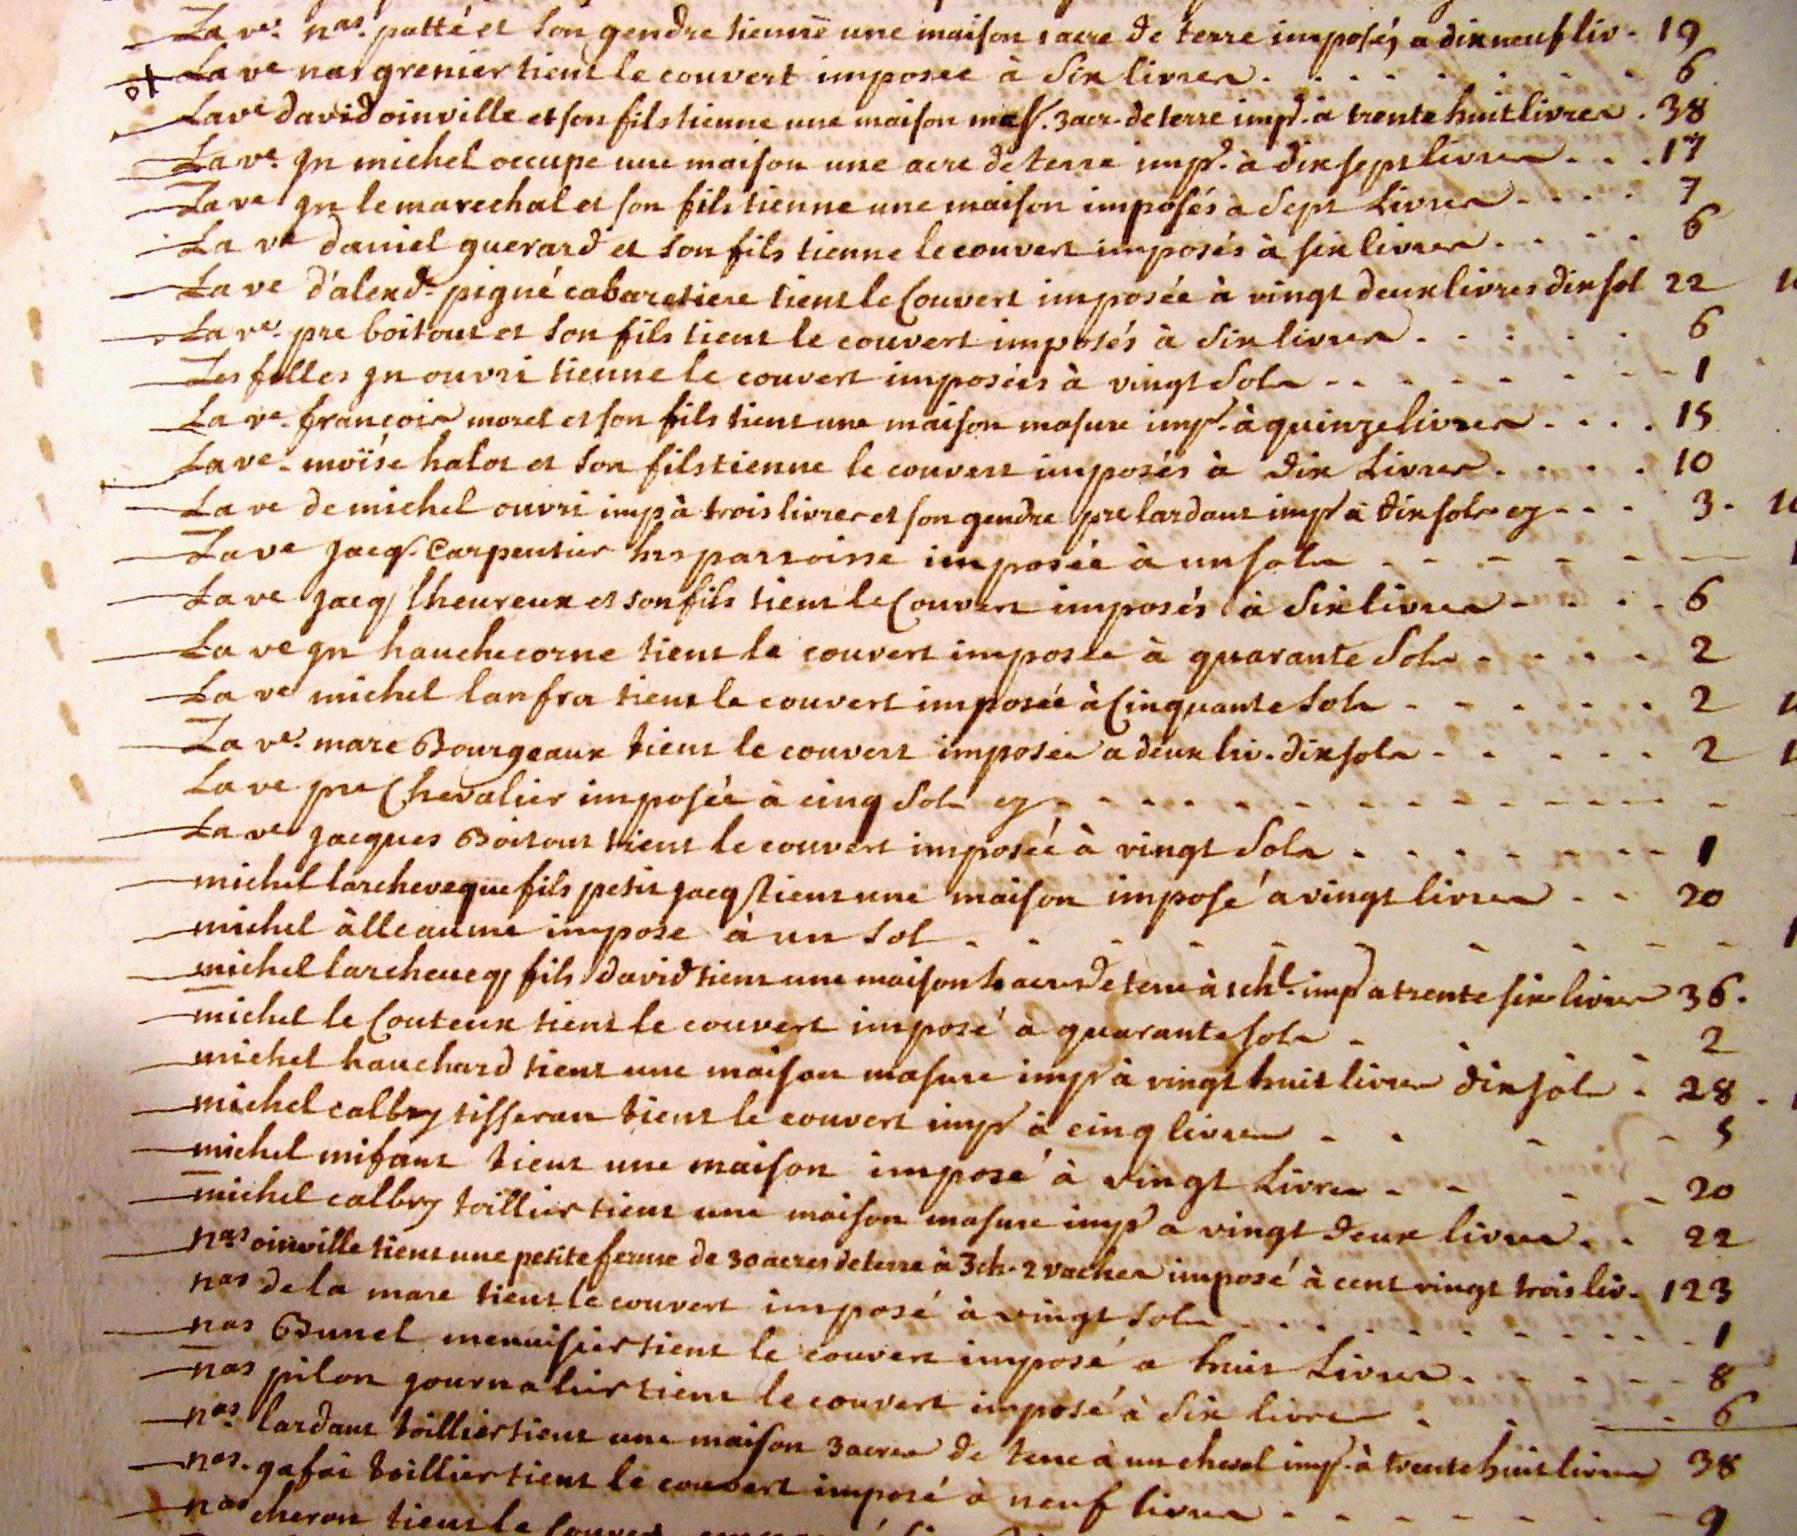 La ve. nas. patté et son gendre tienne une maison 1 acre de terre imposés a dix neuf liv. 19
La ve nas grenier tient le couvert imposee à six livres. 6
La ve david oinville et son fils tienne une maison mas. 3 acr. de terre imp. à trente huit livres. 38
La ve. jn michel occupe une maison une acre de terre imp. à dix sept livres 17
La ve jn le marechal et son fils tienne une maison imposés a sept Livres 7
La ve daniel guerard et son fils tienne le couvert imposés à six livres 6
La ve d'alexd. pigné cabaretiere tient le Couvert imposée à vingt deux livres dix sol 22
La ve. pre boitout et son fils tient le couvert imposés à six livres 6
Les filles jn ouvri tienne le couvert imposées à vingt sols 1
La ve. francois morel et son fils tient une maison masure imp. à quinze livres 15
La ve. moïse halot et son fils tienne le couvert imposés à dix Livres 10
La ve de michel ouvri imp à trois livres et son gendre pre lardant imp à dix sols cy 3
La ve jacq. Carpentier hrs parroisse imposée à un sols
La ve jacq lheureux et son fils tient le Couvert imposés à six livres 6
La ve jn hauchecorne tient le couvert imposee à quarante sols 2
La ve michel lanfra tient le couvert imposée à Cinquante sols 2
La ve. marc Bourgeaux tient le couvert imposée a deux liv. dix sols 2
La ve pre Chevalier imposée à cinq sols cy
La ve jacques Boitout tient le couvert imposée à vingt sols 1
michel larcheveque fils petit jacq tient une maison imposé a vingt livres 20
michel àlleaume impose à un sol
michel larcheveq fils david tient une maison acres de terre à 1 chl. imp a trente six livres 36
michel le Couteux tient le couvert imposé a quarante sols 2
michel hauchard tient une maison masure imp à vingt huit livres dix sols 28
michel calbry tisseran tient le couvert imp à cinq livres 5
michel mifant tient une maison imposé à vingt Livres 20
michel calbry toillier tient une maison masure imp a vingt deux livres 22
nas oinville tient une petite ferme de 30 acres de terre à 3 ch. 2 vaches imposé à cent vingt trois liv. 123
nas de la mare tient le couvert imposé à vingt sols 1
nas Bunel menuisier tient le couvert imposé a huit Livres 8
nas pilon journalier tient le couvert imposé à six livres 6
nas. lardant toillier tient une maison 3 acres de terre à un cheval imp. à trente huit livres 38
nas. gafai toillier tient le couvert imposé à neuf livres 9
nas cheron tient le Couvert